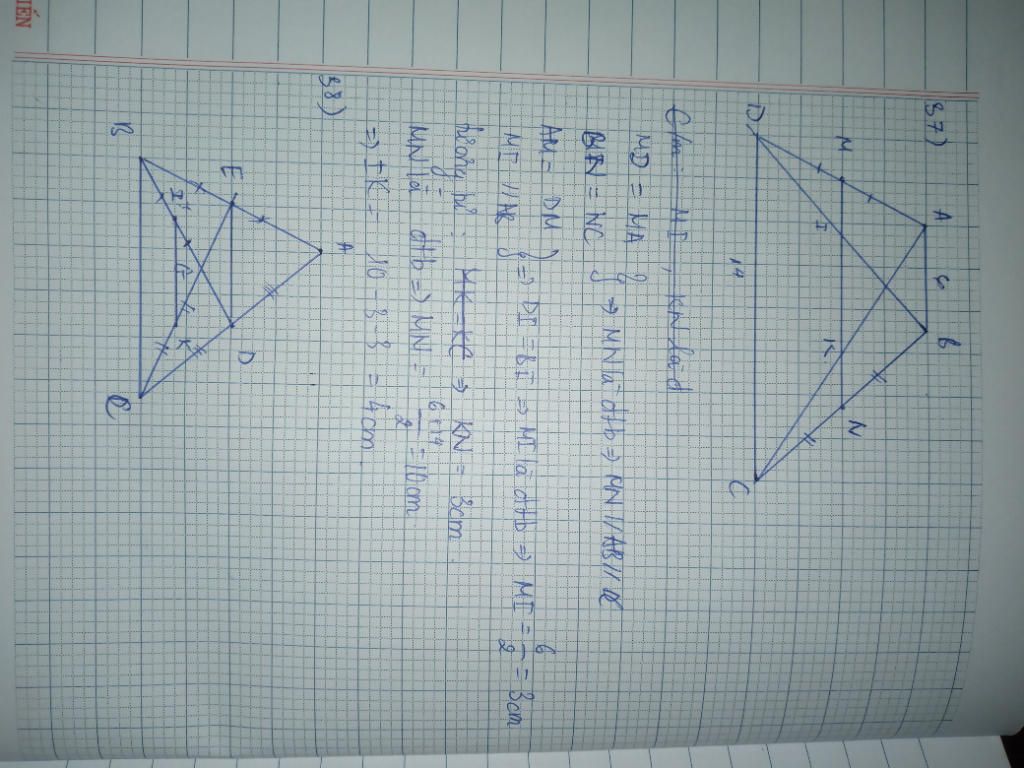 37)
A 6 B
M I K N
D 14 C
C/m: MI, KN là đ
MD = MA
BN = NC } => MN là đtb => MN // AB // DC
AM = DM
MI // AB } => DI = BI => MI là đtb => MI = 6/2 = 3cm
MK = KC => KN = 3cm.
MN là đtb => MN = 6+14/2 = 10cm
=> IK = 10 - 3 - 3 = 4cm.
38)
A
E D
G
I K
B C